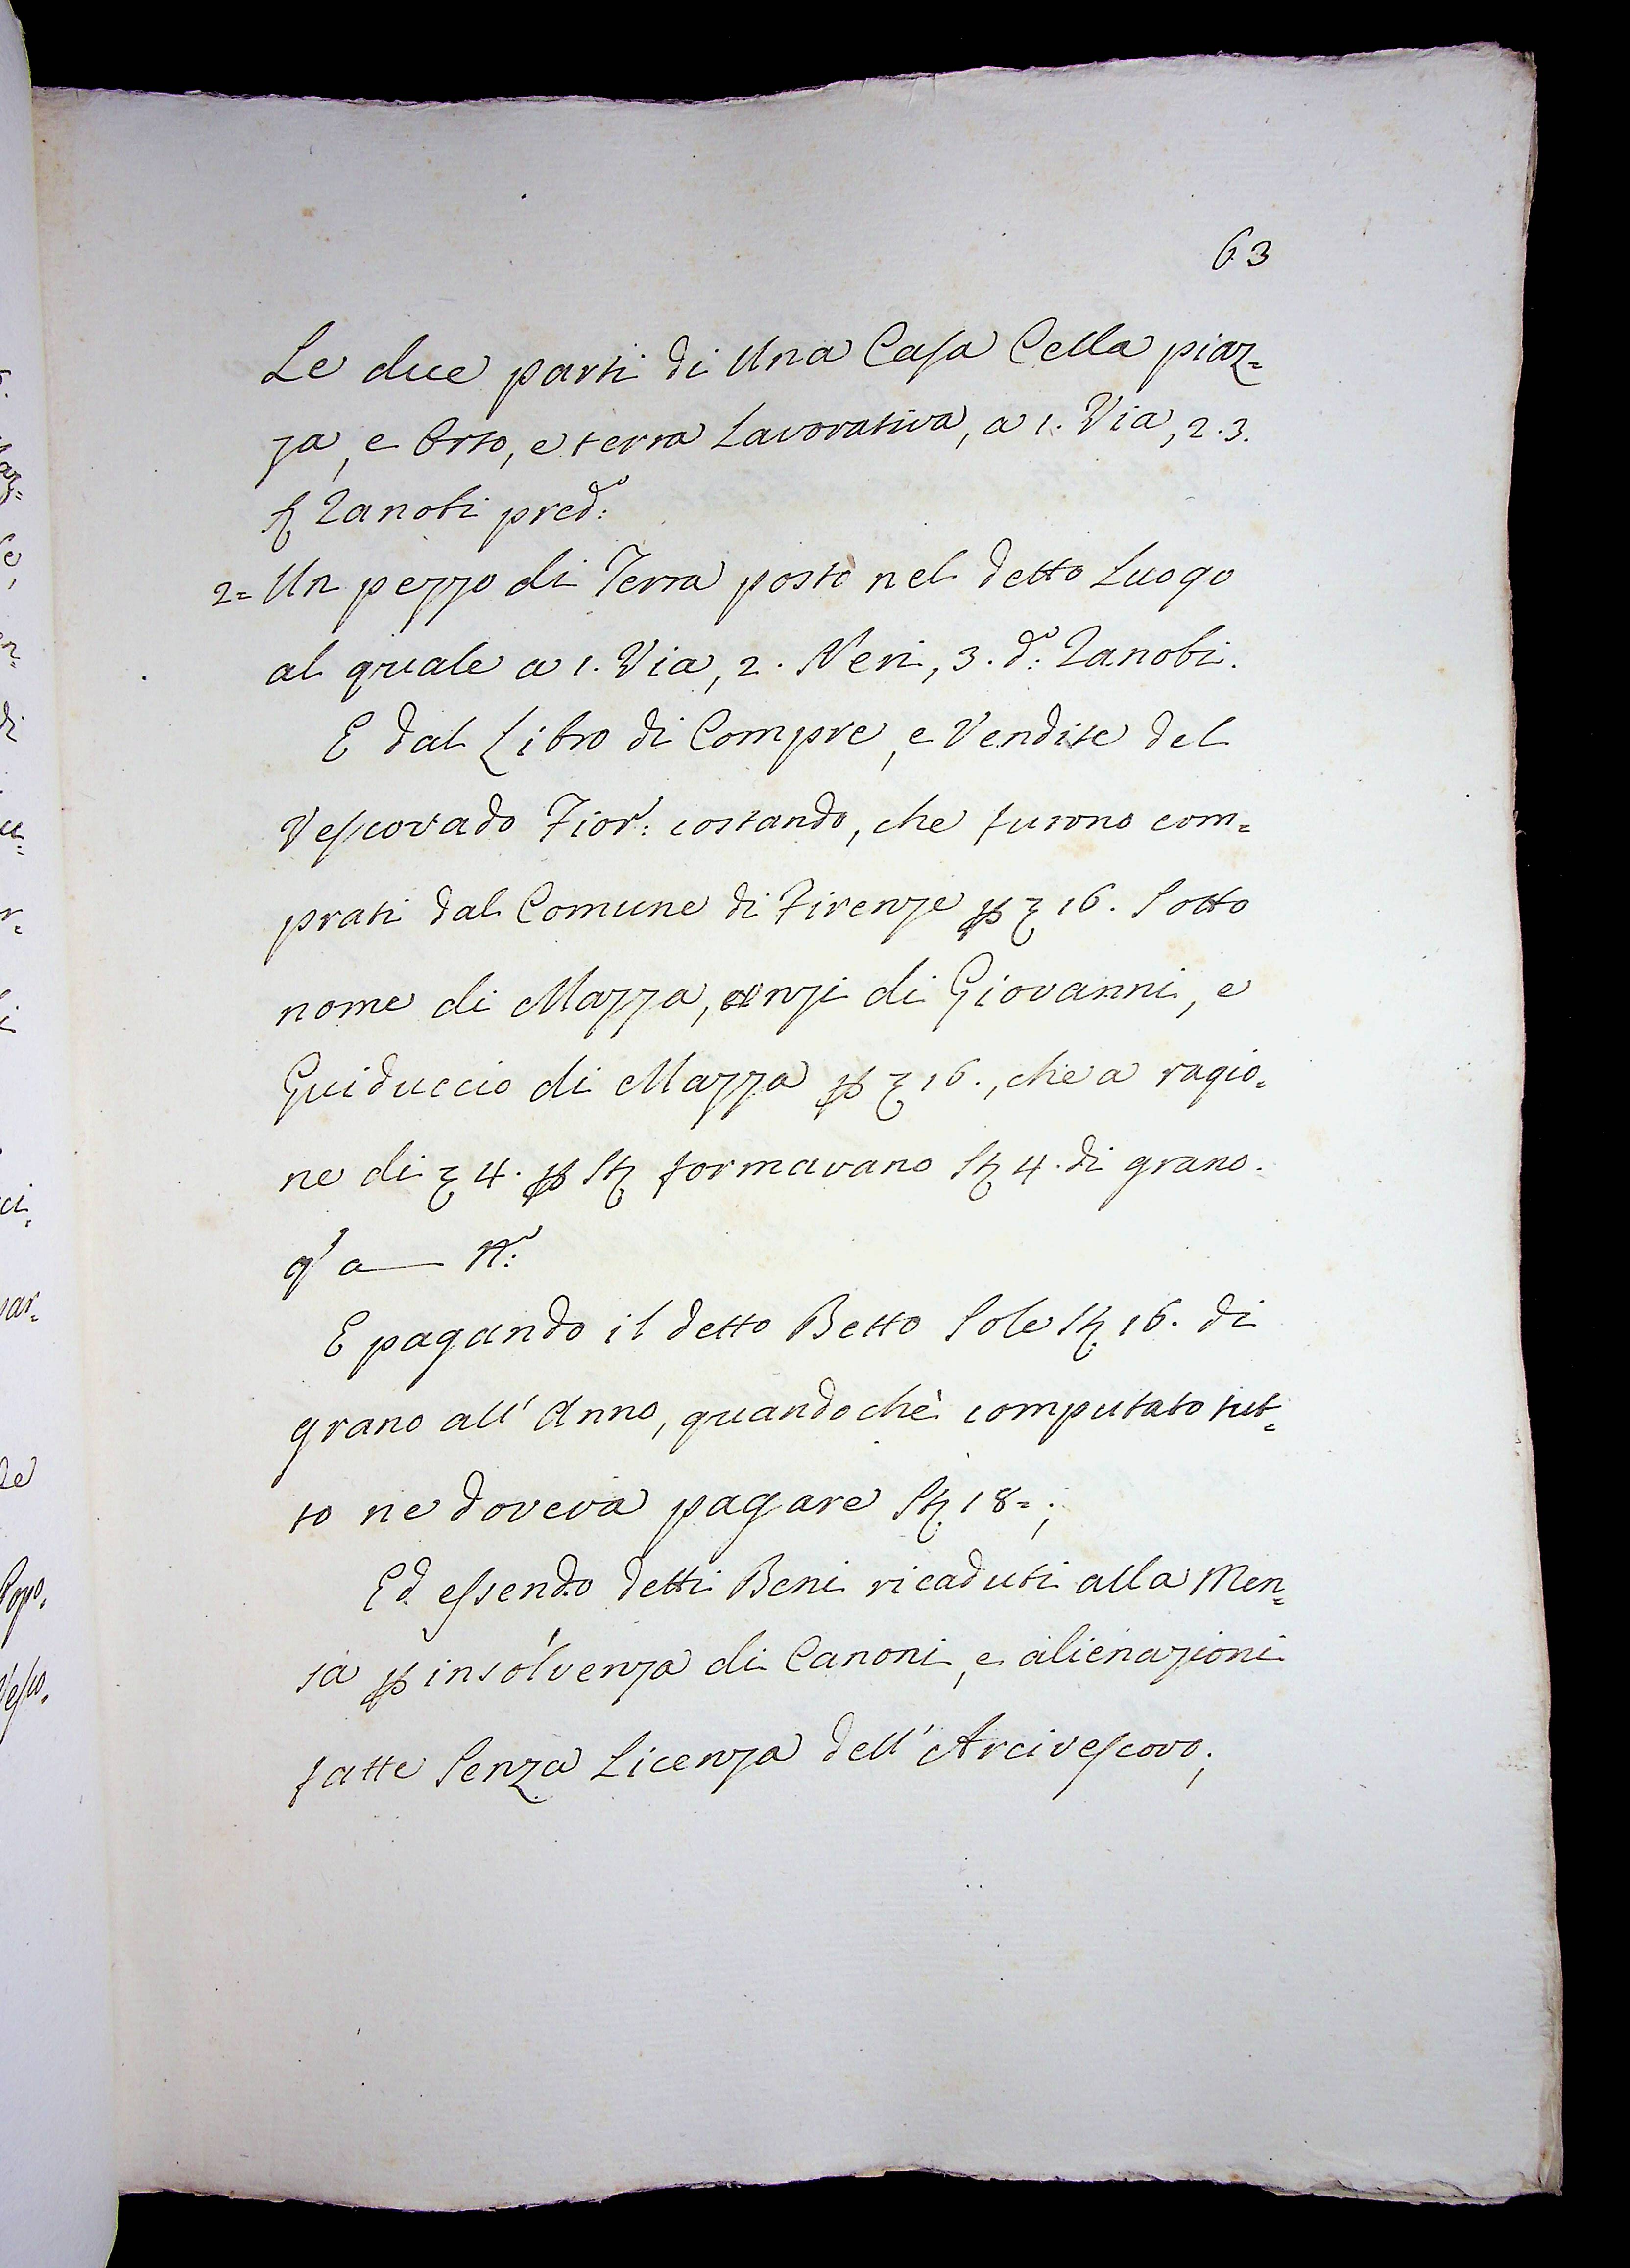 63
Le due parti di Una Casa Cella piaz=
za, e Orto, e terra Lavorativa, a 1. Via, 2. 3.
Zanobi pred.º:
2= Un pezzo di Terra posto nel detto Luogo
al quale a 1. Via, 2. Neri, 3. d.º: Zanobi.
E dal Libro di Compre, e Vendite del
Vescovado Fior.: costando, che furono com=
prati dal Comune di Firenze ꝑ ʒ 16. Sotto
nome di Mazza, anzi di Giovanni, e
Guiduccio di Mazza ꝑ ʒ 16., che a ragio=
ne di ʒ 4. ꝑ St formavano St 4. di grano.
q' a — N.º:
E pagando il detto Betto Sole St. 16. di
grano all' Anno, quandochè computato tut=
to ne doveva pagare St. 18=;
Ed essendo detti Beni ricaduti alla Men=
sa ꝑ insolvenza di Canoni, e alienazioni
fatte Senza Licenza dell' Arcivescovo;